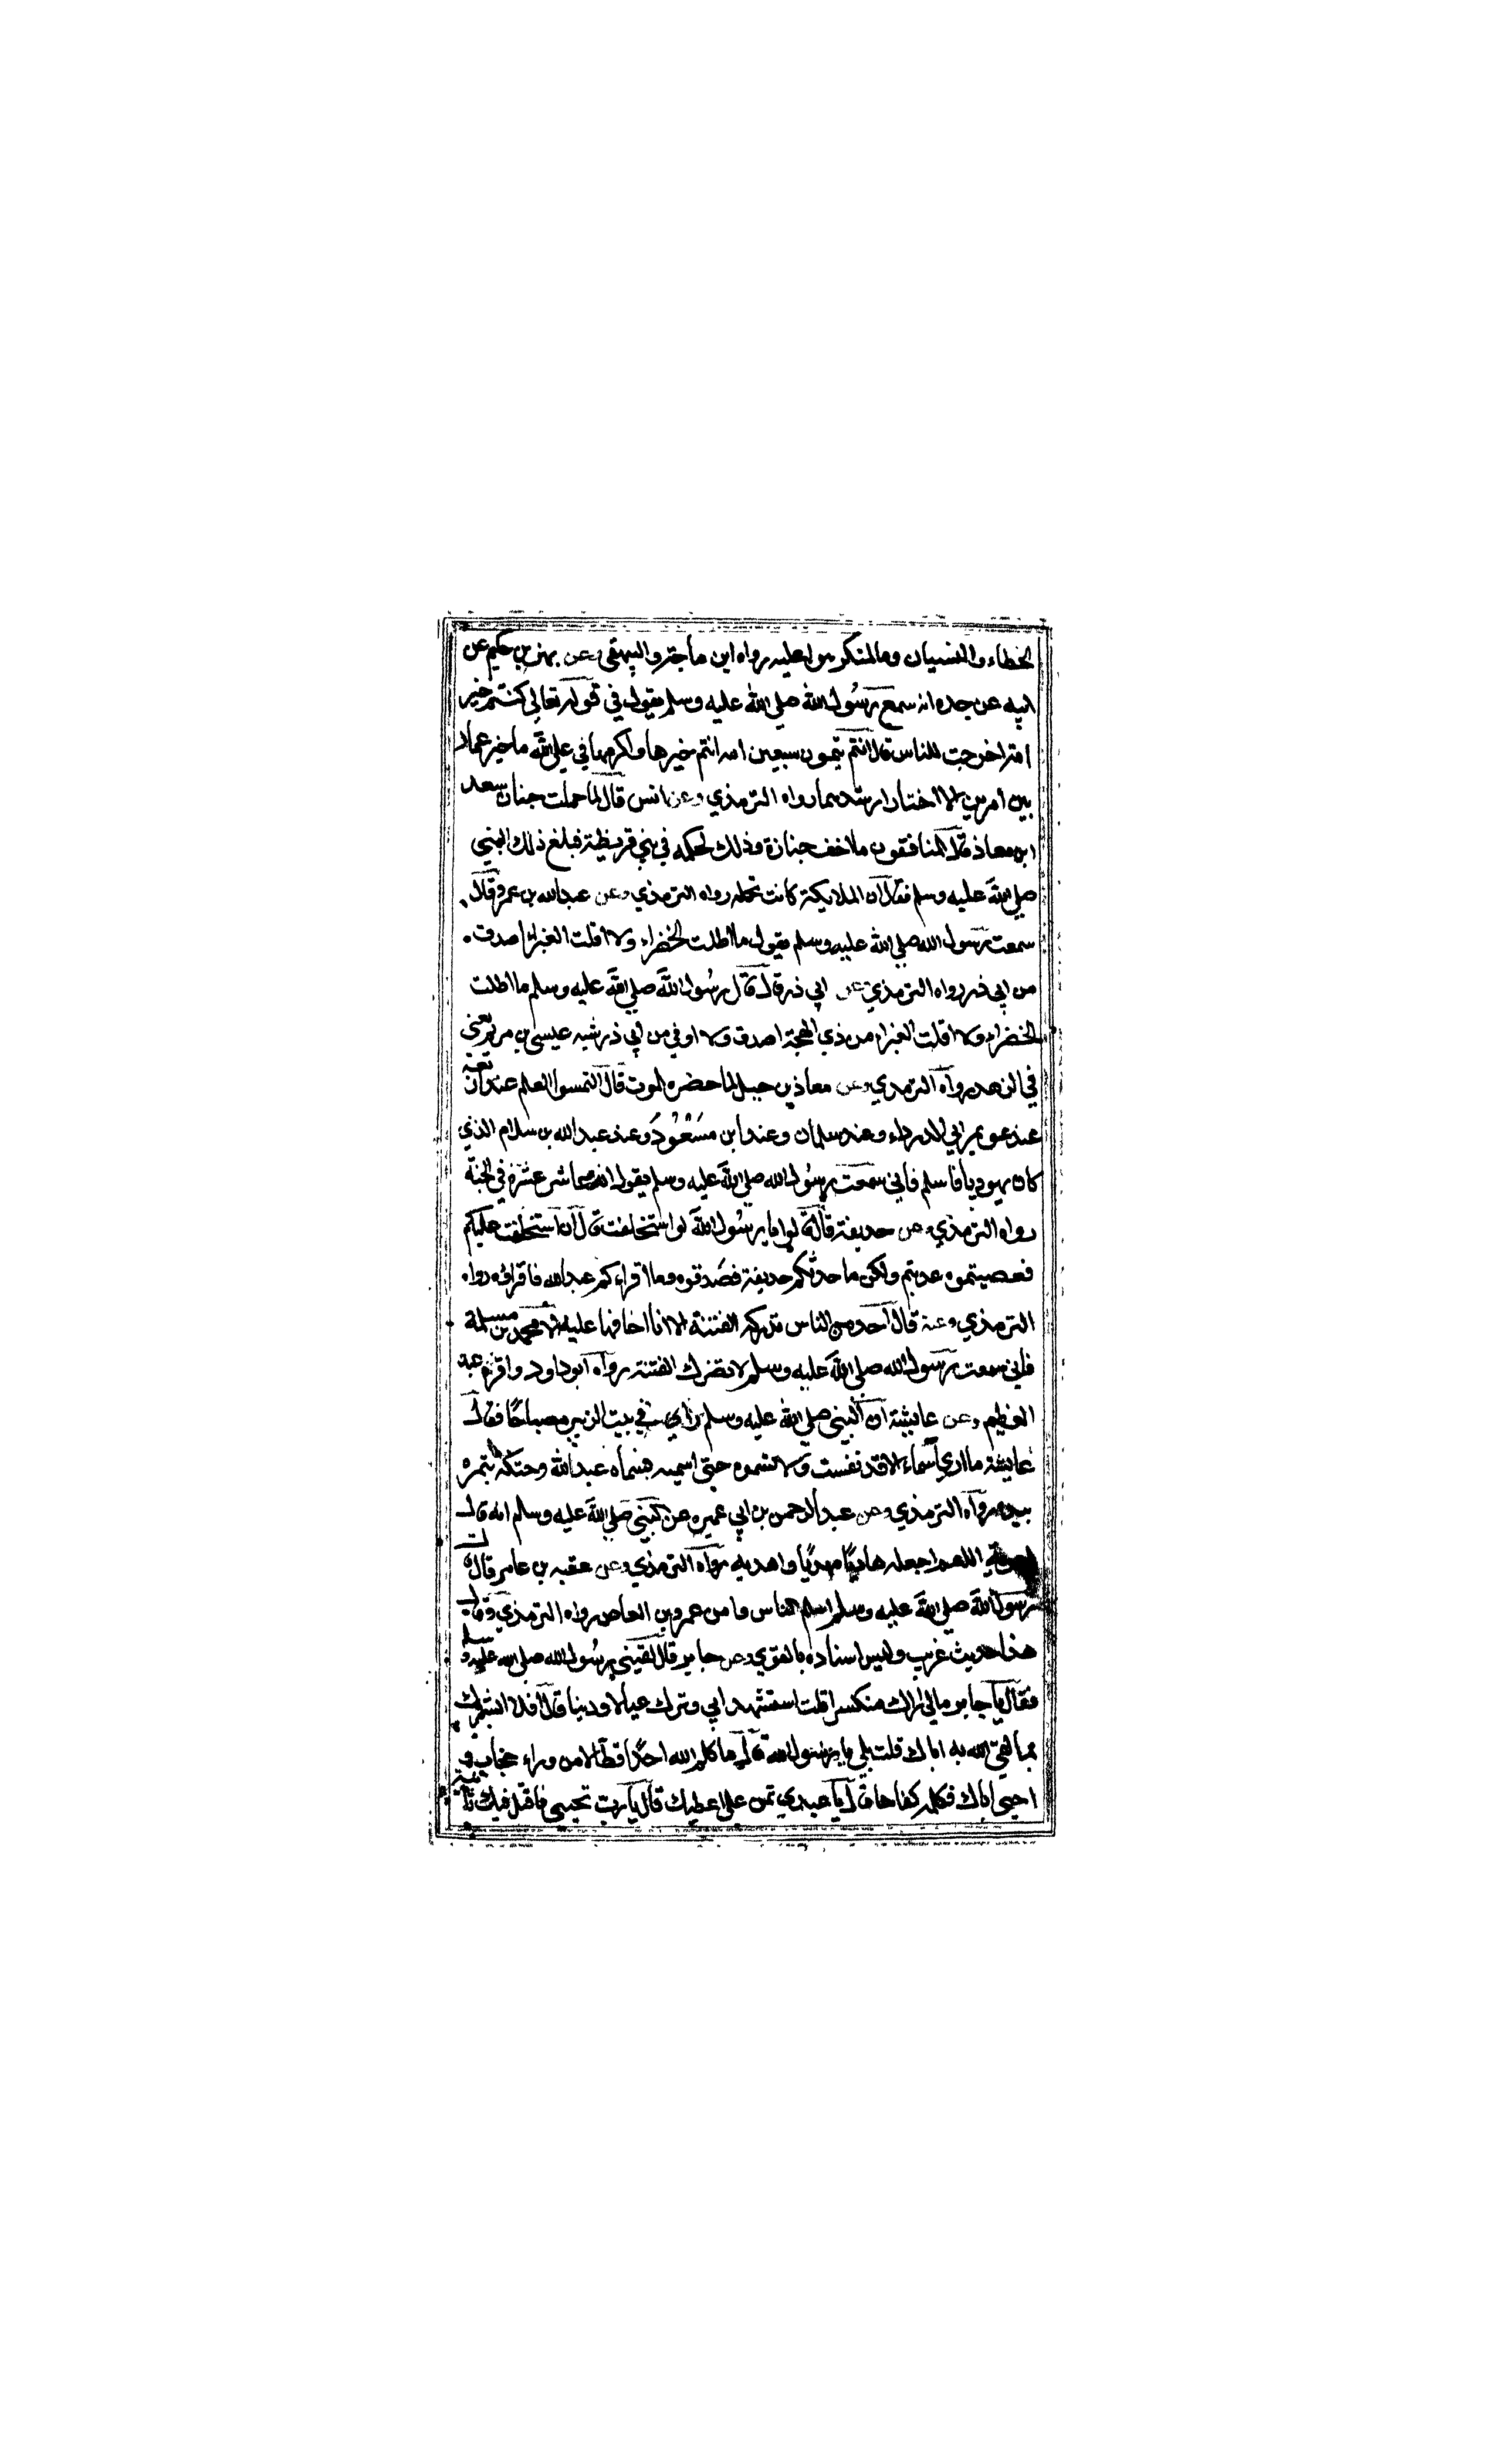 الخطاء والنسيان وما استكرهوا عليه رواه ابن ماجة والبيهقي وعن بهز بن حكيم عن
ابيه عن جده انه سمع رسول الله صلي الله عليه وسلم يقول في قوله تعالي كنتم خير
امة اخرجت للناس قال انتم تتمون سبعين امة انتم خيرها واكرمها علي الله ما خير عمار
بين امرين الا اختار ارشدهما رواه الترمذي وعن انس قال لما حملت جنازة سعد
ابن معاذ قال المنافقون ما اخف جنازة وذلك لحكمه في بني قريظة فبلغ ذلك النبي
صلي الله عليه وسلم فقال ان الملايكة كانت تحمله رواه الترمذي وعن عبدالله بن عمرو قال
سمعت رسول الله صلي الله عليه وسلم يقول ما اظلت الخضراء ولا اقلت الغبراء اصدق
من ابي ذر رواه الترمذي وعن ابي ذر قال قال رسول الله صلي الله عليه وسلم ما اظلت
الخضراء ولا اقلت الغبراء من ذي لهجة اصدق ولا اوفي من ابي ذر شبه عيسي بن مريم يعني
في الزهد رواه الترمذي وعن معاذ بن جبل لما حضره الموت قال التمسوا العلم عند اربعة
عند عويمر ابي الدرداء وعند سلمان وعند ابن مسعود وعند عبد الله بن سلام الذي
كان يهوديا فاسلم فاني سمعت رسول الله صلي الله عليه وسلم يقول انه عاشر عشرة في الجنة
رواه الترمذي وعن حذيفة قال قالوا يا رسول الله لو استخلفت قال ان استخلفت عليكم
فعصيتموه عذبتم ولكن ما حدثكم حذيفة فصدقوه وما اقراءكم عبدالله فاقرؤه رواه
الترمذي وعنه قال ما احد من الناس تدركه الفتنة الا انا اخافها عليه الا محمد بن مسلمة
فاني سمعت رسول الله صلي الله عليه وسلم لا تضرك الفتنة رواه ابوداود واقره عبد
العظيم وعن عايشة ان النبي صلي الله عليه وسلم راي في بيت الزبير مصباحا فقال
يا عايشة ما اري اسماء الا قد نفست ولا تسموه حتي اسميه فسماه عبدالله وحنكه بتمرة
بيده رواه الترمذي وعن عبد الرحمن بن ابي عميرة عن النبي صلي الله عليه وسلم انه قال
لمعوية اللهم اجعله هاديا مهديا واهد به رواه الترمذي وعن عقبه بن عامر قال قال
رسول الله صلي الله عليه وسلم اسلم الناس وامن عمرو بن العاص رواه الترمذي وقال
هذا حديث غريب وليس اسناده بالقوي وعن جابر قال لقيني رسول الله صلي الله عليه وسلم
فقال يا جابر مالي اراك منكسرا قلت استشهد ابي وترك عيالا ودينا قال افلا ابشرك
بما لقي الله به اباك قلت بلي يا رسول الله قال ما كلم الله احدا قط الا من وراء حجاب و
احيي اباك فكلمه كفاحا قال يا عبدي تمن علي اعطيك قال يارب تحييني فاقتل فيك ثانية